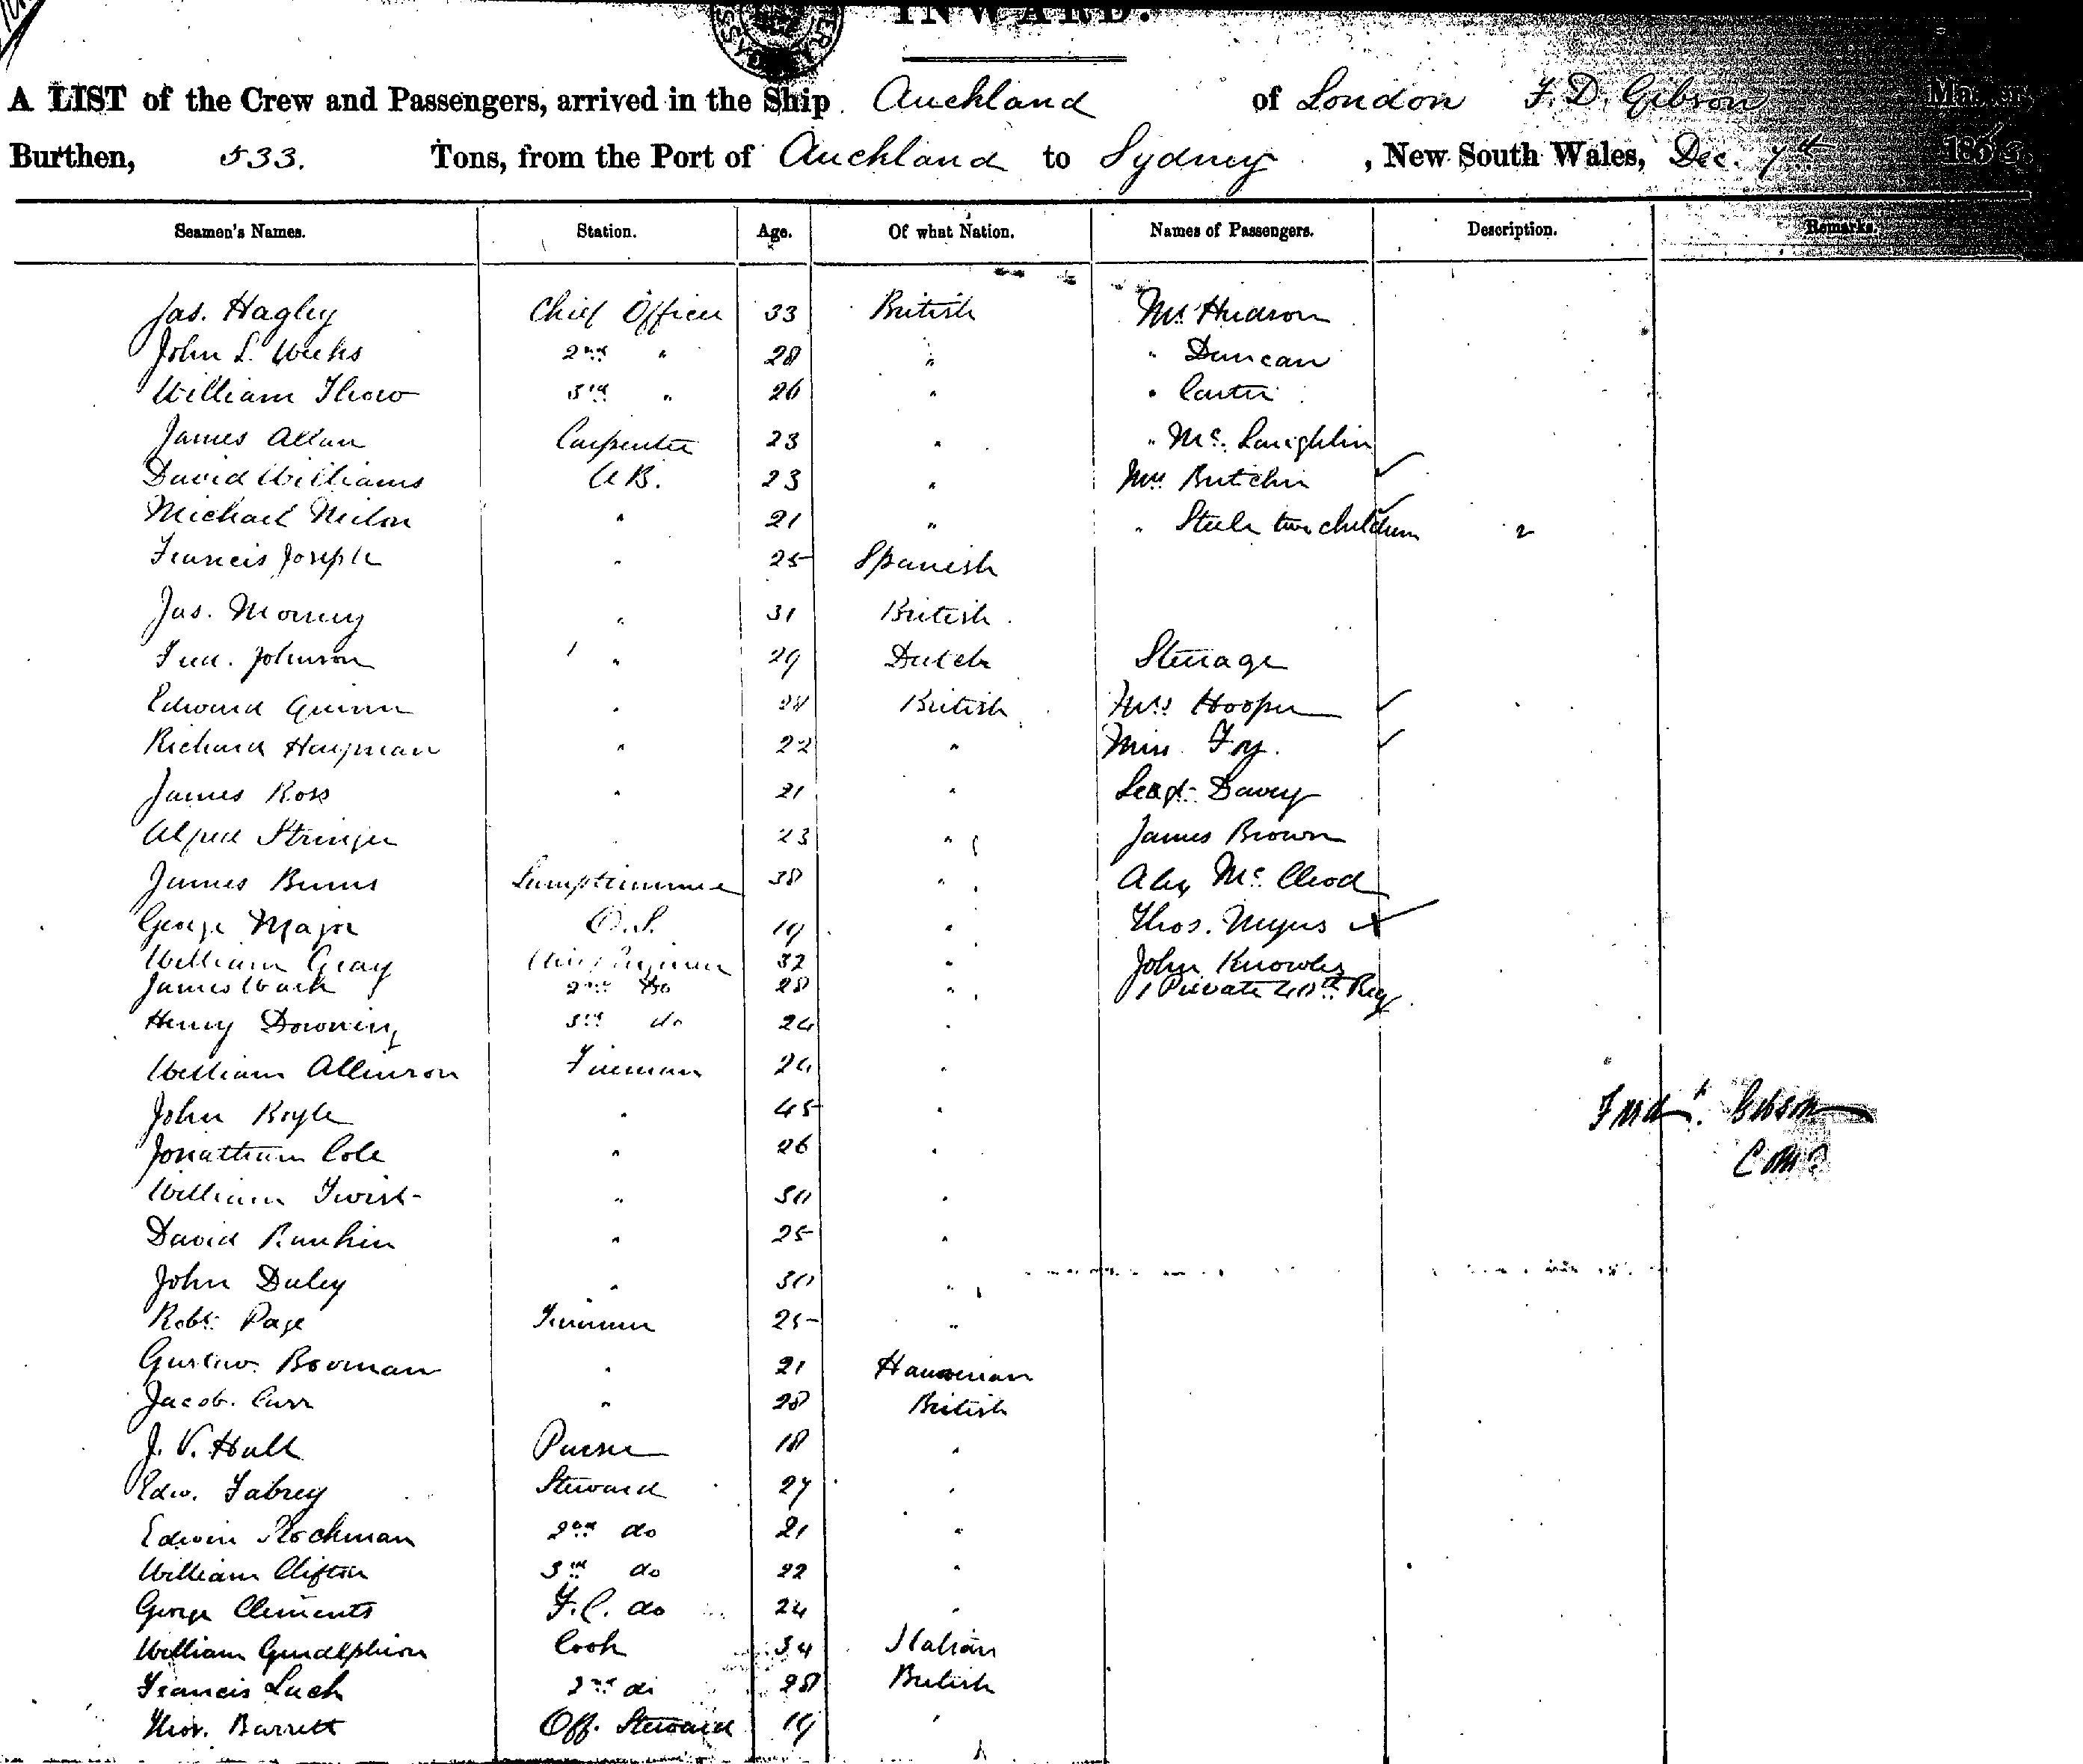 INWARD.
A LIST of the Crew and Passengers, arrived in the Ship Auckland of London F. D. Gibson Master
Burthen, 533. Tons, from the Port of Auckland to Sydney, New South Wales, Dec. 7th 186
Seamen's Names. Station. Age. Of what Nation. Names of Passengers. Description. Remarks.
Jas. Hagley Chief Officer 33 British Mr. Hudson
John L. Weeks 2nd " 28 " " Duncan
William Thow 3rd " 26 " " Carter
James Allan Carpenter 23 " " Mc. Laughlin
David Williams A B. 23 " Mrs Butchin
Michael Neilon " 21 " " Steele two children 2
Francis Joseph " 25 Spanish
Jas. " 31 British
Johnson " 29 Dutch Steerage
Edward Quinn " 28 British Mrs Hooper
Richard Haysman " 22 " Miss Foy.
James Ross " 21 " Davey
Alfred Stringer 23 " James Brown
James Burns Lamptrimmer 38 " Alex Mc. Cleod
George Major O.S. 19 " Thos. Myers
William Gray Chief Engineer 32 " John Knowles
James 2nd Do 28 " 1 Private 40th Reg.
Henry Downing 3rd do 24 "
William Allinson Fireman 24 "
John Boyle " 45 " Fredk. Gibson
Jonathan Cole " 26 " Comr
William Twist " 30 "
David Rankin " 25 "
John Daley " 30 "
Robt. Page 25 "
Gustav. Bowman " 21 Hanoverian
Jacob. Carr " 28 British
J. V. Hall Purser 18 "
Edw. Fabrey Steward 27 "
Edwin 2nd do 21 "
William Clifton 3rd do 22 "
George Clements F.C. do 24 "
William Cook 34 Italian
Francis Luck 2nd do 28 British
Thos. Barrett Off. Steward 19 "